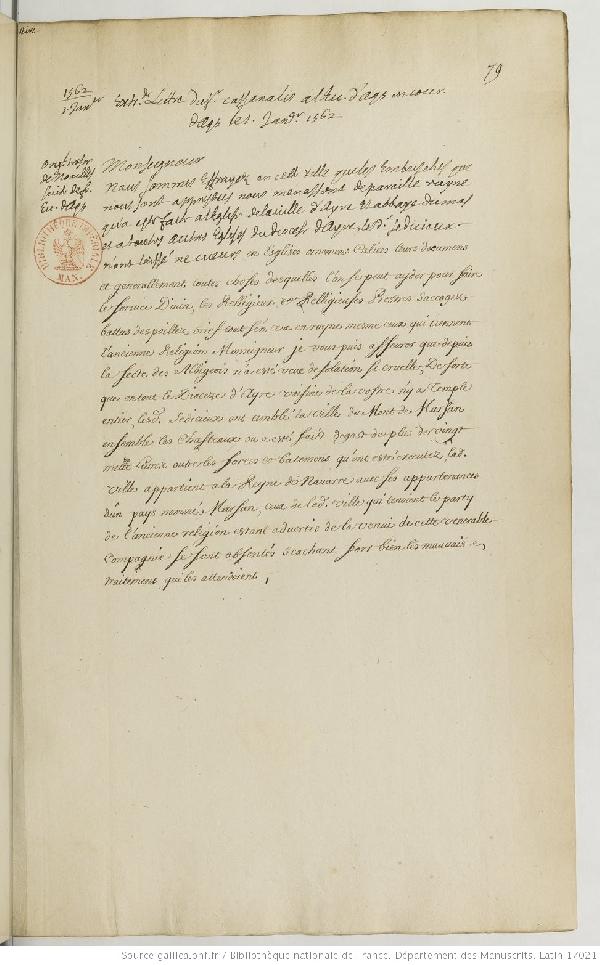 79
1562
1. Janer
Extr. Lettre du Sr. cassanalis a l'Eu. d'Aqs en cour
d'Aqs le 1. Janer. 1562
de Noailles
Ev. d'Aqs
BIBLIOTHÈQUE IMPÉRIALE
MAN.
Monseigneur
Nous sommes en cette ville que les
nous sont nous menassent de pareille ruyne
qu'a esté fait de la ville d'Ayre et abbaye du mas
et a toutes autres Eglises du diocese d'Ayre les d. sedicieux
n'ont laissé ne en Esglises ornemens Calices leurs documens
et generallement toutes choses desquelles l'on se peut ayder pour faire
le service Divin, les Relligieux et Relligieuses Prestres saccagés
battus despeillez brief tout s'en va en ruyne mesme ceux qui tiennent
l'ancienne Religion, Monseigneur je vous puis asseurer que depuis
la secte des Albigeois n'a esté veue desolation si cruelle, De sorte
que en tout le Dioceze d'Ayre voisine de la vostre n'y a Temple
entier, lesd. Sedicieux ont emblé la ville du Mont de Marsan
ensemble les Chasteaux ou a esté faict degast de plus de vingt
mille livres outre les forces et batemens qu'ont esté lad.
ville appartient a la Reyne de Navarre avec ses appartenances
d'un pays nommé Marsan, ceux de lad. ville qui tenoient le party
de l'ancienne religion estant advertis de la venue de cette venerable
Compagnie se sont absentés scachant fort bien les mauvais
traitemens qui les attendoient,
Source gallica.bnf.fr / Bibliothèque nationale de France. Département des Manuscrits. Latin 17021